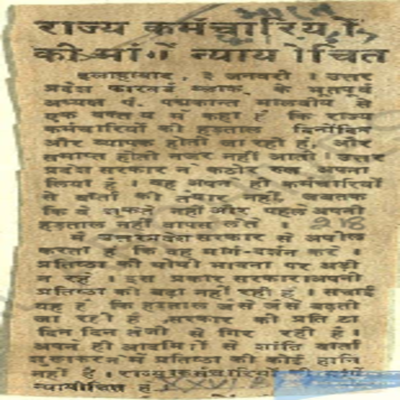 राज्य कर्मचारियों
की मांगें न्यायोचित
इलाहाबाद, २ जनवरी । उत्तर
प्रदेश फारवर्ड ब्लाक के भूतपूर्व
अध्यक्ष पं. पद्मकान्त मालवीय ने
एक वक्तव्य में कहा है कि राज्य
कर्मचारियों की हड़ताल दिनोंदिन
और व्यापक होती जा रही है, और
समाप्त होती नजर नहीं आती । उत्तर
प्रदेश सरकार ने कठोर रुख अपना
लिया है । वह अपने ही कर्मचारियों
से वार्ता को तैयार नहीं, जबतक
कि वे झुकते नहीं और पहले अपनी
हड़ताल नहीं वापस लेते ।
में उत्तरप्रदेश सरकार से अपील
करता हूं कि वह मार्ग-दर्शन करे ।
प्रतिष्ठा की थोथी भावना पर अड़ी
न रहे । इस प्रकार सरकार अपनी
प्रतिष्ठा को बढ़ा नहीं रही है । सचाई
यह है कि हड़ताल जैसे जैसे बढ़ती
जा रही है सरकार की प्रतिष्ठा
दिन दिन तेजी से गिर रही है ।
अपने ही आदमियों से शांति वार्ता
शुरू करने में प्रतिष्ठा की कोई हानि
नहीं है । राज्य कर्मचारियों की मांगें
न्यायोचित हैं